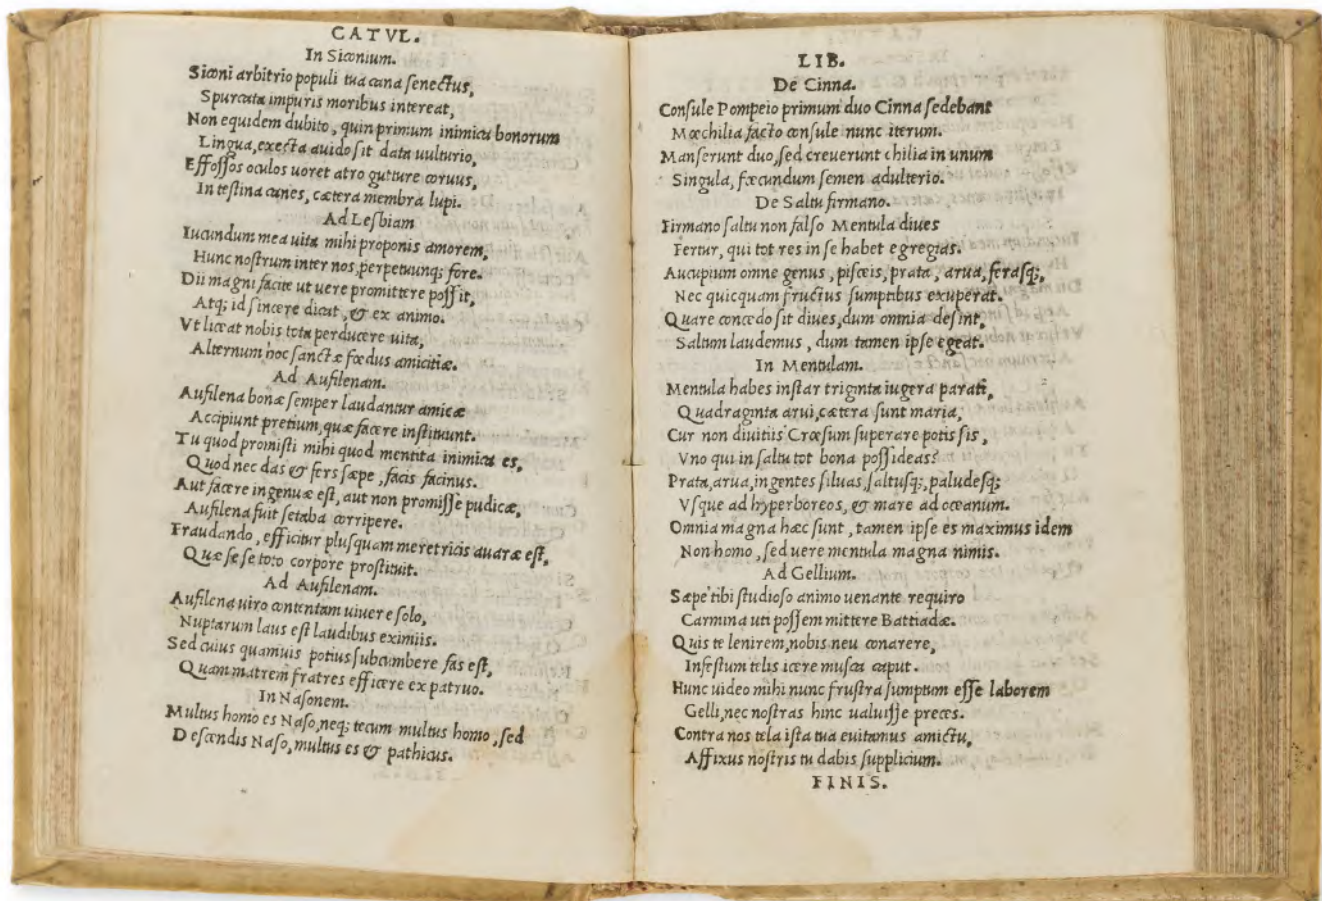 CATVL.
In Siconium.
Siconi arbitrio populi tua cana senectus,
Spurcata impuris moribus intereat,
Non equidem dubito, quin primum inimica bonorum
Lingua, execta auido sit data uulturio,
Effossos oculos uoret atro gutture coruus,
Intestina canes, cætera membra lupi.
Ad Lesbiam
Iucundum mea uita mihi proponis amorem,
Hunc nostrum inter nos, perpetuunq; fore.
Dii magni facite ut uere promittere possit,
Atq; id sincere dicat, & ex animo.
Vt liceat nobis tota perducere uita,
Alternum hoc sanctæ fœdus amicitiæ.
Ad Aufilenam.
Aufilena bonæ semper laudantur amicæ
Accipiunt pretium, quæ facere instituunt.
Tu quod promisti mihi quod mentita inimica es,
Quod nec das & fers sæpe, facis facinus.
Aut facere ingenuæ est, aut non promisse pudicæ,
Aufilena fuit setaba corripere.
Fraudando, efficitur plusquam meretricis auaræ est,
Quæ sese toto corpore prostituit.
Ad Aufilenam.
Aufilena uiro contentam uiuere solo,
Nuptarum laus est laudibus eximiis.
Sed cuius quamuis potius subcumbere fas est,
Quam matrem fratres efficere ex patruo.
In Nasonem.
Multus homo es Naso, neq; tecum multus homo, sed
Descendis Naso, multus es & pathicus.
LIB.
De Cinna.
Consule Pompeio primum duo Cinna sedebant
Mœchilia facto consule nunc iterum.
Manserunt duo, sed creuerunt chilia in unum
Singula, fœcundum semen adulterio.
De Saltu firmano.
Firmano saltu non falso Mentula diues
Fertur, qui tot res in se habet egregias.
Aucupium omne genus, pisceis, prata, arua, ferasq;,
Nec quicquam fructus sumptibus exuperat.
Quare concedo sit diues, dum omnia desint,
Saltum laudemus, dum tamen ipse egeat.
In Mentulam.
Mentula habes instar triginta iugera parati,
Quadraginta arui, cætera sunt maria,
Cur non diuitiis Crœsum superare potis sis,
Vno qui in saltu tot bona possideas?
Prata, arua, ingentes siluas, saltusq;, paludesq;
Vsque ad hyperboreos, & mare ad oceanum.
Omnia magna hæc sunt, tamen ipse es maximus idem
Non homo, sed uere mentula magna nimis.
Ad Gellium.
Sæpe tibi studioso animo uenante requiro
Carmina uti possem mittere Battiadæ.
Quis te lenirem, nobis neu conarere,
Infestum telis icere musca caput.
Hunc uideo mihi nunc frustra sumptum esse laborem
Gelli, nec nostras hinc ualuisse preces.
Contra nos tela ista tua euitamus amictu,
Affixus nostris tu dabis supplicium.
FINIS.